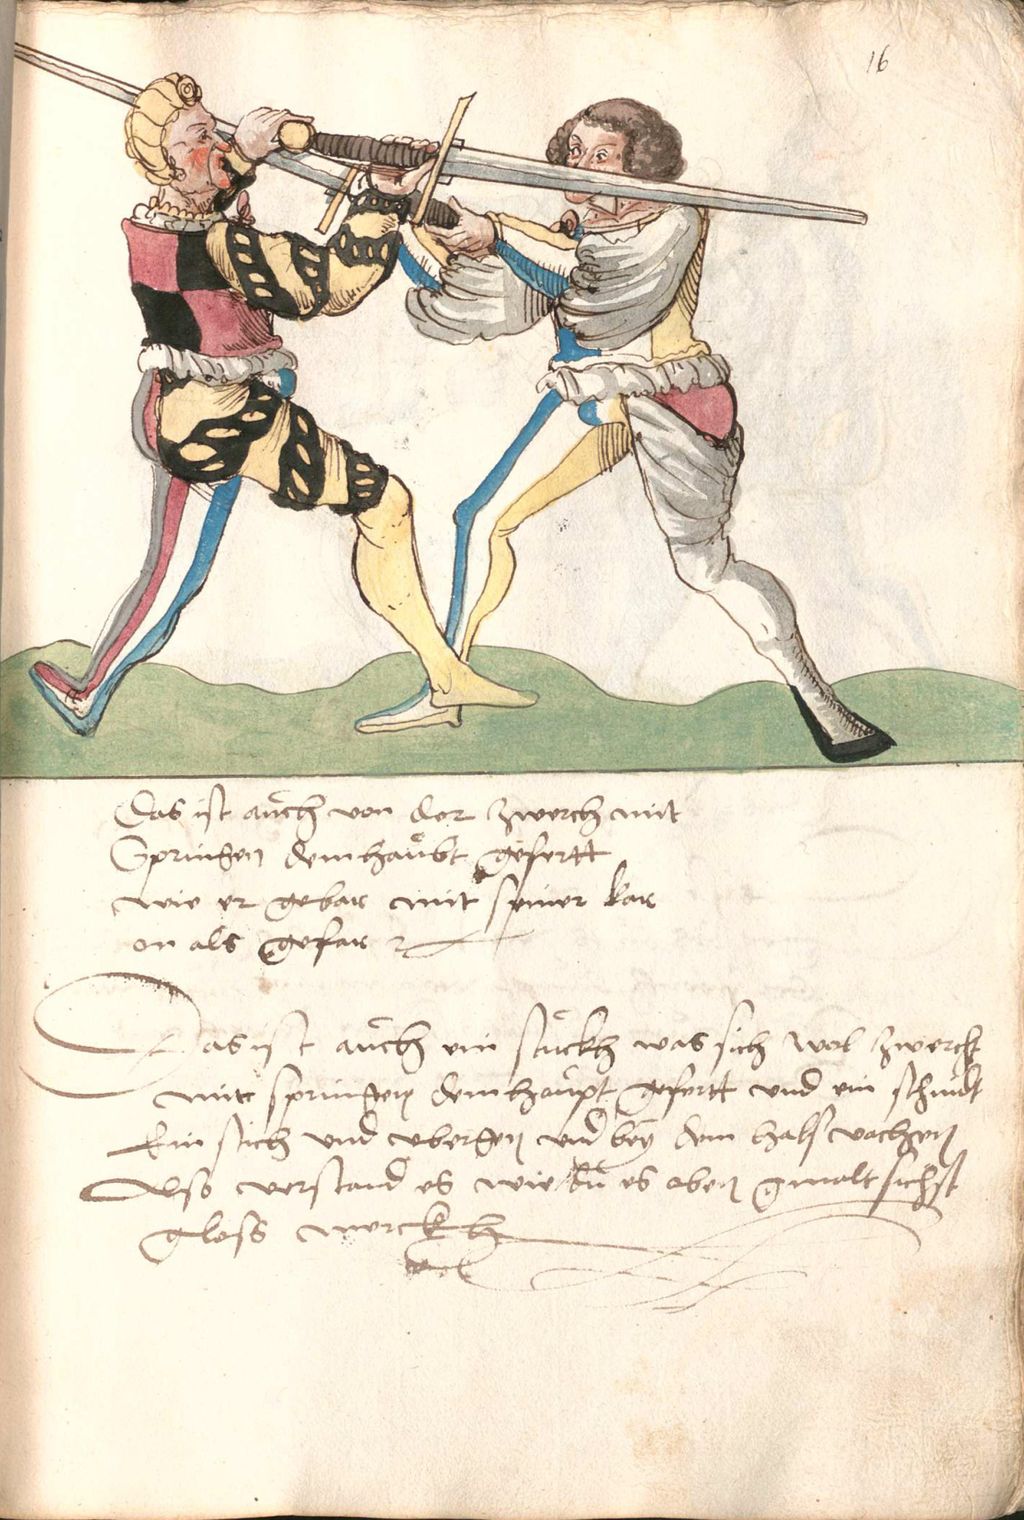 16
Das ist aůch von der zwerch mit
Springen dem haůbt gefertt
wie er gebar mit seiner kar
on als gefar
Das ist aůch ein stůckh was sich wol zwerch
mit springen dem haůpt gefertt und ein schnidt
Ein stich und ubergen und bey dem halß vachen
Also verstand es wie dů es oben gmalt sichst
gloss merckh